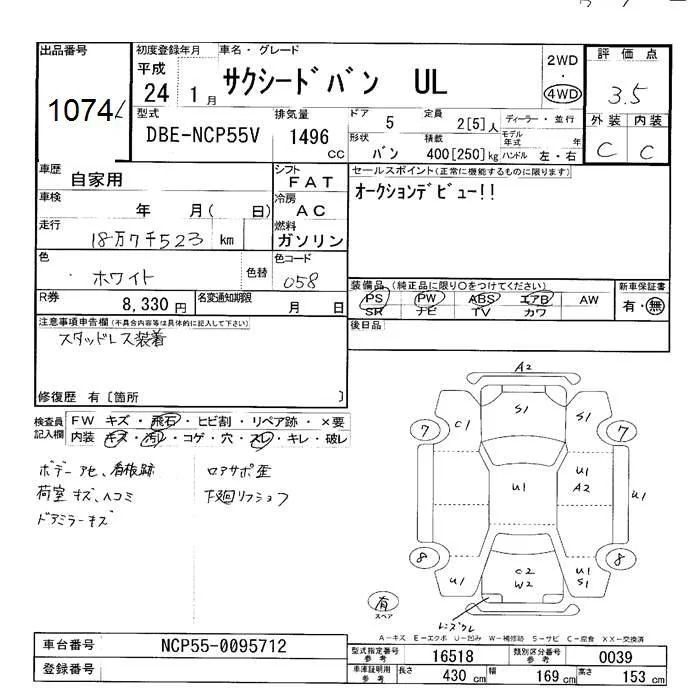 出品番号
1074
初度登録年月
平成
24 1月
車名・グレード
サクシードバン UL
2WD
・
4WD
評価点
3.5
外装 内装
C C
型式
DBE-NCP55V
排気量
1496
CC
ドア
5
定員
2[5]人
形状
バン
積載
400[250]kg
ディーラー・並行
モデル年式 年
ハンドル 左・右
車歴
自家用
シフト
FAT
セールスポイント(正常に機能するものに限ります)
オークションデビュー!!
車検
年 月( 日)
冷房
AC
走行
18万7千523 km
燃料
ガソリン
色
ホワイト
色替
色コード
058
装備品(純正品に限り○をつけてください)
PS PW ABS エアB AW
SR ナビ TV カワ
新車保証書
有・無
R券
8,330円
名変通知期限
月 日
後日品
注意事項申告欄(不具合内容等は具体的に記入して下さい)
スタッドレス装着
修復歴 有〔箇所 〕
検査員記入欄
FW キズ・飛石・ヒビ割・リペア跡・×要
内装 キズ・汚レ・コゲ・穴・スレ・キレ・破レ
ボデーアセ、看板跡
荷室キズ、ヘコミ
ドアミラーキズ
ロアサポ歪
下廻リフショク
A2
C1
S1
S1
7
7
U1
U1
A2
U1
8
8
U1
C2
W2
U1
S1
有
スペア
レンズワレ
A-キズ E-エクボ U-凹み W-補修跡 S-サビ C-腐食 XX-交換済
車台番号
NCP55-0095712
登録番号
型式指定番号
参考
16518
類別区分番号
参考
0039
車庫証明用
参考
長さ
430 cm
幅
169 cm
高さ
153 cm